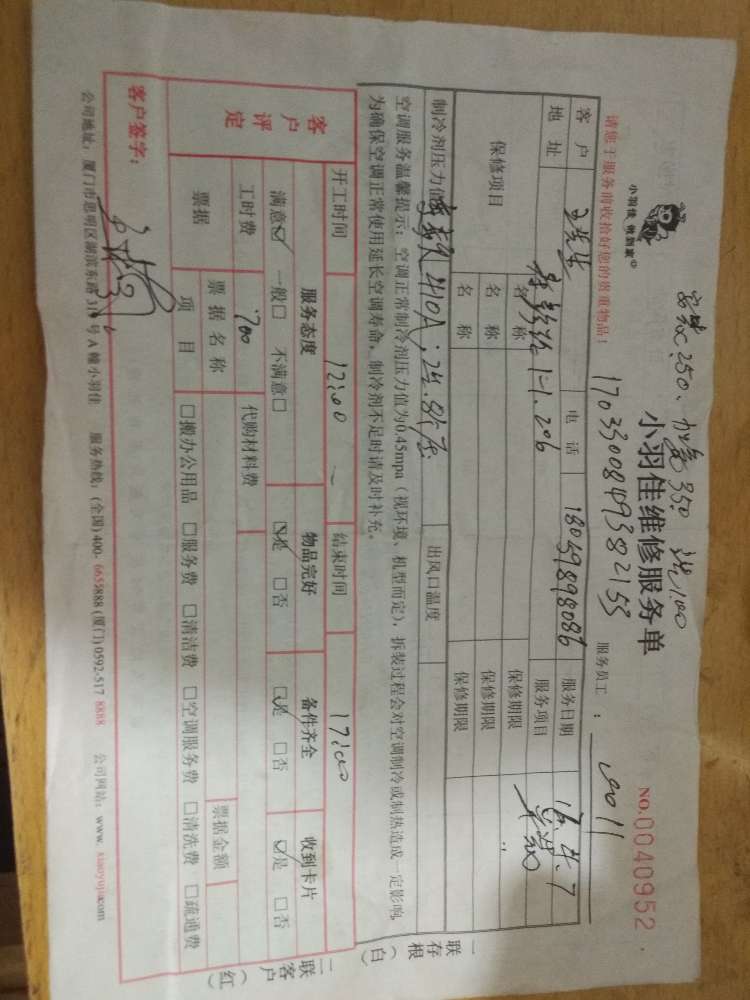 安装250、加氟350 税100
小羽佳 做到家
小羽佳维修服务单
NO.0040952
请您于服务前收拾好您的贵重物品!
1703300849382153
服务员工：
客户
电话 18059898086
服务日期
地址
1-1.206
服务项目
保修项目
名称
保修期限
名称
保修期限
名称
保修期限
制冷剂压力值
410A:
出风口温度
空调服务温馨提示：空调正常制冷剂压力值为0.45mpa（视环境、机型而定），拆装过程会对空调制冷或制热造成一定影响，
为确保空调正常使用延长空调寿命，制冷剂不足时请及时补充。
开工时间 12:00 结束时间 17:00
客户评定
服务态度 物品完好 备件齐全 收到卡片
满意☑ 一般□ 不满意□ ☑是 □否 ☑是 □否 ☑是 □否
工时费 700 代购材料费
票据
票据名称
票据金额
项目 □搬办公用品 □服务费 □清洁费 □空调服务费 □清洗费 □疏通费
客户签字：
公司地址：厦门市思明区湖滨东路 号A幢小羽佳 服务热线：(全国)400-6655888 (厦门)0592-517 8888 公司网站：www.xiaoyujia.com
一联存根（白）
二联客户（红）